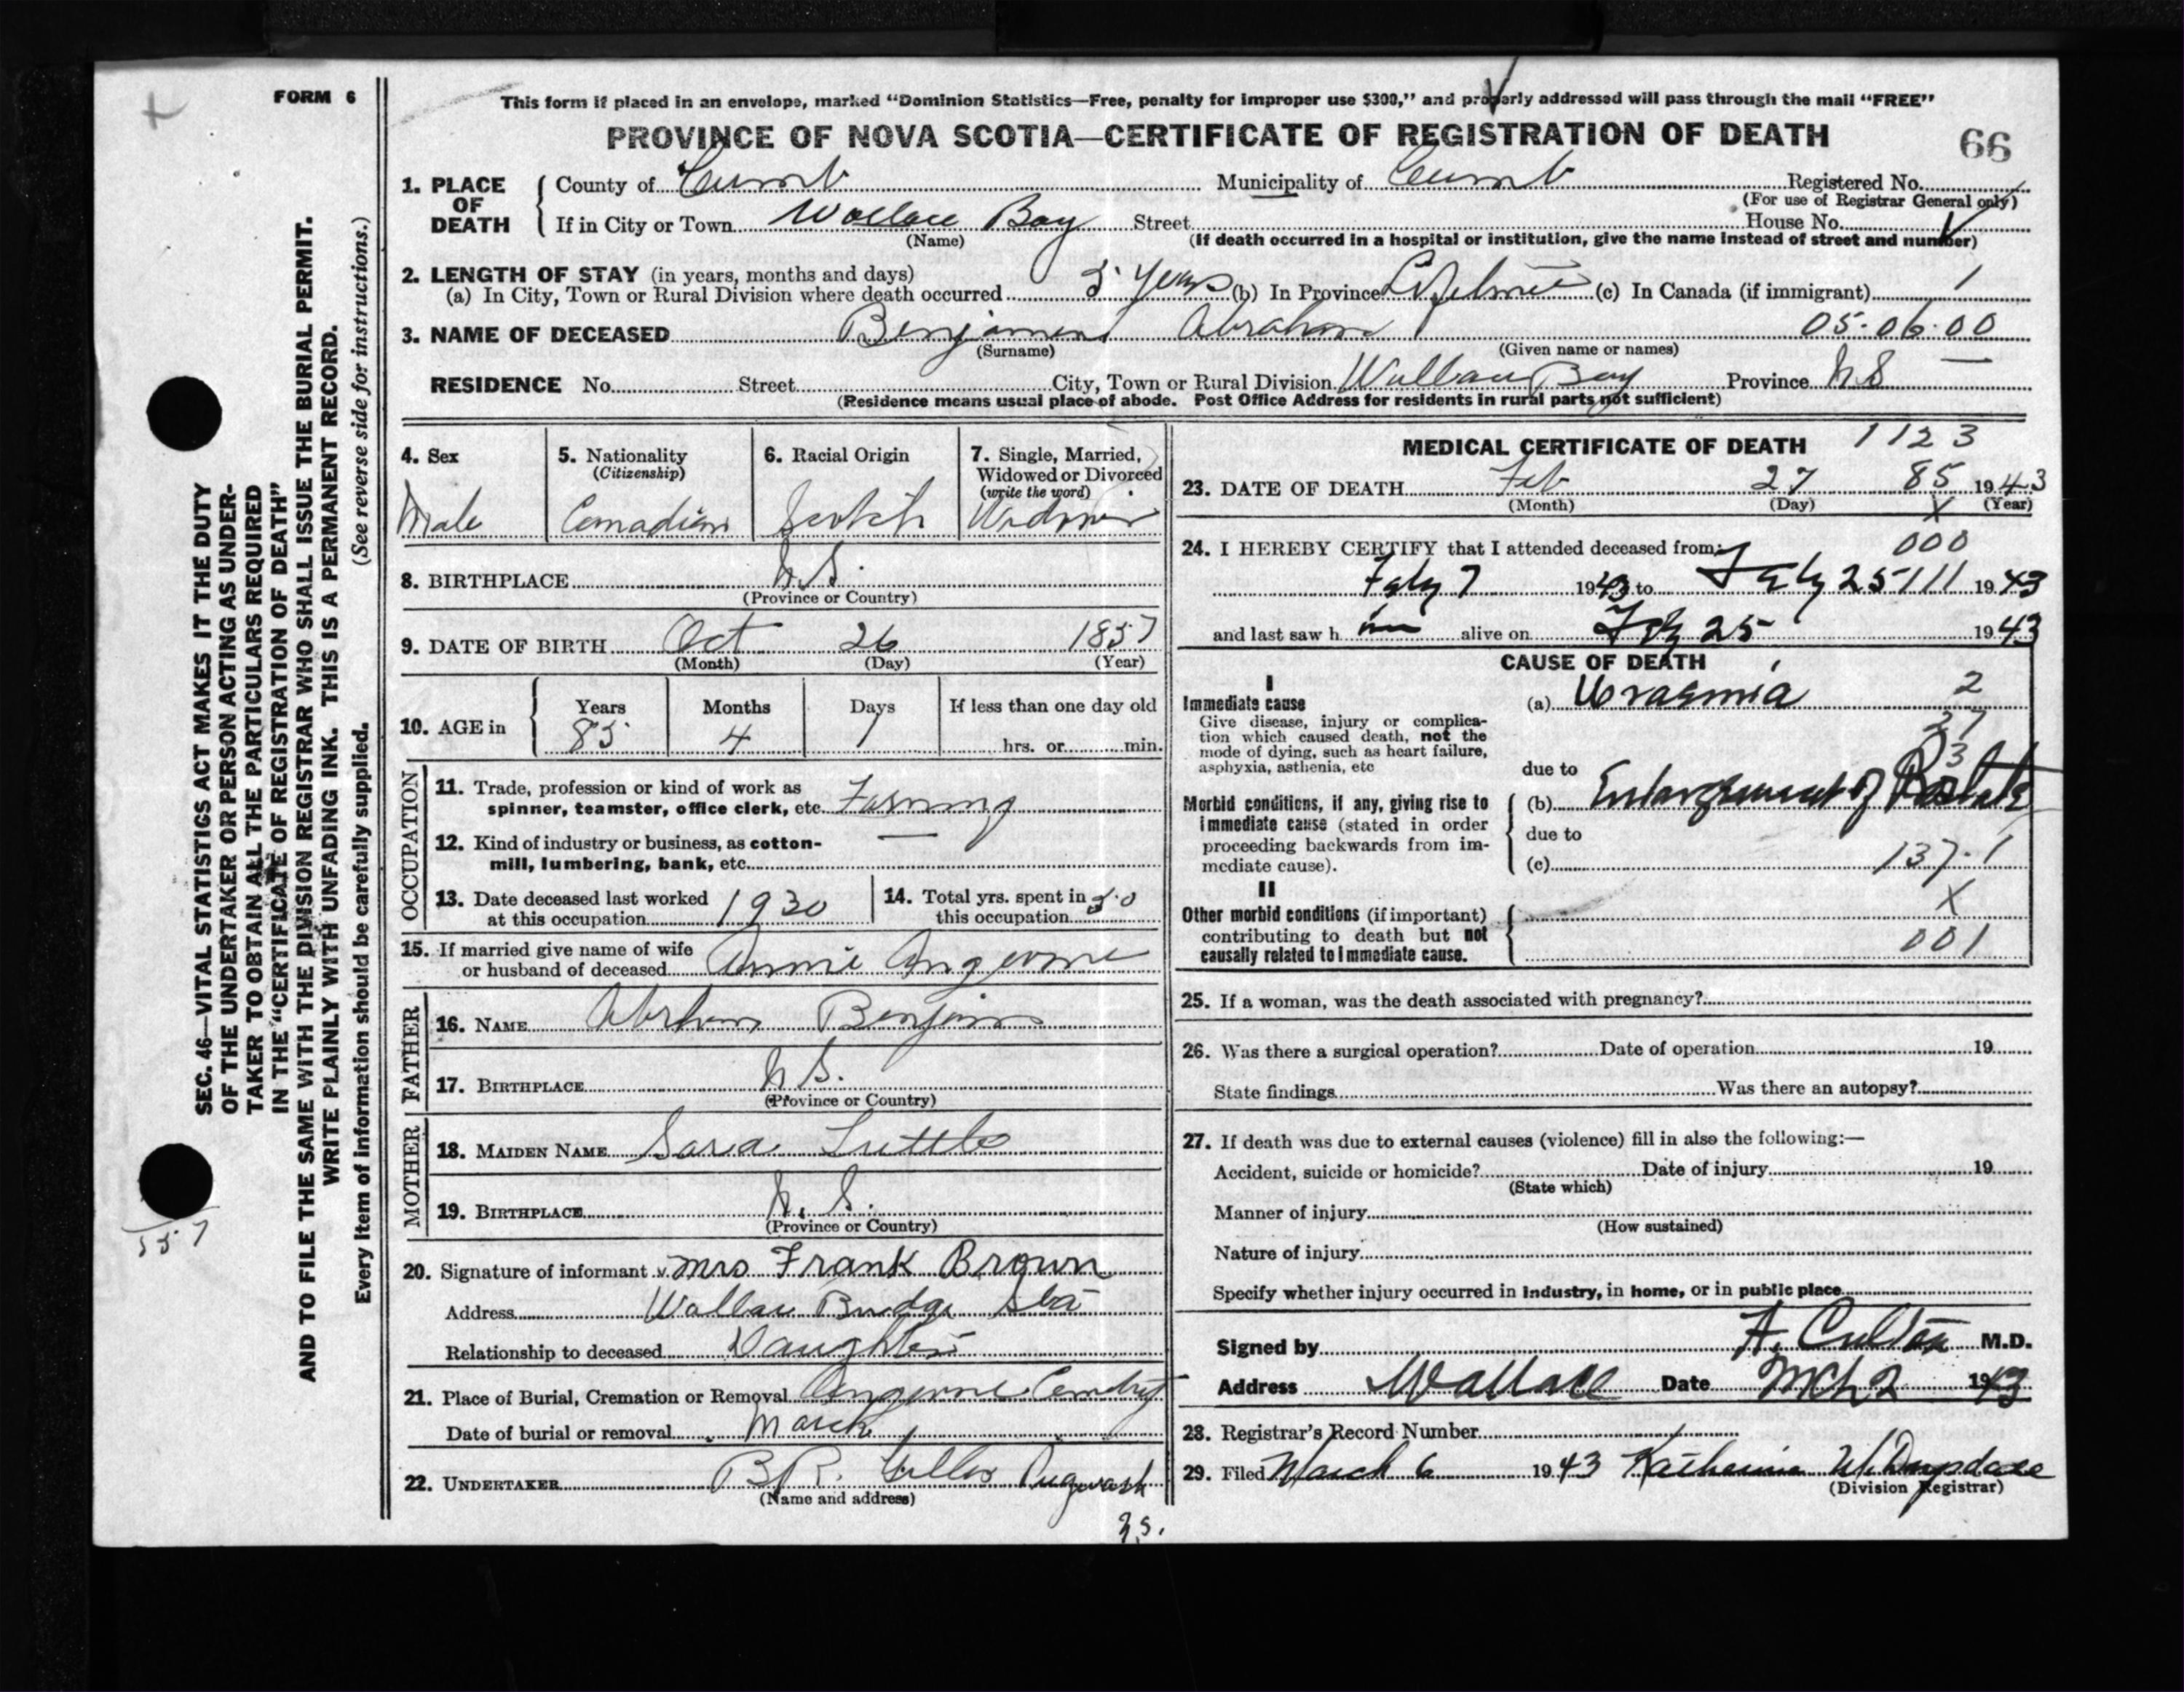 FORM 6
This form if placed in an envelope, marked “Dominion Statistics—Free, penalty for improper use $300,” and properly addressed will pass through the mail “FREE”
PROVINCE OF NOVA SCOTIA—CERTIFICATE OF REGISTRATION OF DEATH
66
1. PLACE OF DEATH County of Cumb Municipality of Cumb Registered No.
(For use of Registrar General only)
If in City or Town Wallace Bay Street House No.
(Name) (If death occurred in a hospital or institution, give the name instead of street and number)
2. LENGTH OF STAY (in years, months and days)
(a) In City, Town or Rural Division where death occurred 5 Years (b) In Province Lifetime (c) In Canada (if immigrant) 1
3. NAME OF DECEASED Benjamin Abraham 05·06·00
(Surname) (Given name or names)
RESIDENCE No. Street City, Town or Rural Division Wallace Bay Province N S —
(Residence means usual place of abode. Post Office Address for residents in rural parts not sufficient)
4. Sex 5. Nationality (Citizenship) 6. Racial Origin 7. Single, Married, Widowed or Divorced (write the word)
Male Canadian Scotch Widower
8. BIRTHPLACE N.S.
(Province or Country)
9. DATE OF BIRTH Oct 26 1857
(Month) (Day) (Year)
10. AGE in Years Months Days If less than one day old
85 4 1 hrs. or min.
OCCUPATION
11. Trade, profession or kind of work as
spinner, teamster, office clerk, etc. Farming
12. Kind of industry or business, as cotton- —
mill, lumbering, bank, etc.
13. Date deceased last worked at this occupation 1930
14. Total yrs. spent in this occupation 50
15. If married give name of wife
or husband of deceased Annie Angevine
FATHER
16. NAME Abrham Benjamin
17. BIRTHPLACE N S.
(Province or Country)
MOTHER
18. MAIDEN NAME Sara Tuttle
19. BIRTHPLACE N. S.
(Province or Country)
20. Signature of informant Mrs Frank Brown
Address Wallace Bridge Sta
Relationship to deceased Daughter
21. Place of Burial, Cremation or Removal Angevine Cemetry
Date of burial or removal March 1
22. UNDERTAKER B R. Pugwash
(Name and address)
N.S.
MEDICAL CERTIFICATE OF DEATH 1123
23. DATE OF DEATH Feb 27 85 1943
(Month) (Day) X (Year)
24. I HEREBY CERTIFY that I attended deceased from: 000
Feby 7 1943 to Feby 25 111 1943
and last saw h im alive on Feb 25 1943
CAUSE OF DEATH
I
Immediate cause (a) Uraemia 2
Give disease, injury or complica-
tion which caused death, not the 37
mode of dying, such as heart failure,
asphyxia, asthenia, etc due to 3
Morbid conditions, if any, giving rise to (b) Enlargement of Prostate
immediate cause (stated in order due to
proceeding backwards from im-
mediate cause). (c) 137·1
II
Other morbid conditions (if important) X
contributing to death but not
causally related to immediate cause. 001
25. If a woman, was the death associated with pregnancy?
26. Was there a surgical operation? Date of operation 19
State findings Was there an autopsy?
27. If death was due to external causes (violence) fill in also the following:—
Accident, suicide or homicide? Date of injury 19
(State which)
Manner of injury
(How sustained)
Nature of injury
Specify whether injury occurred in industry, in home, or in public place
Signed by M.D.
Address Wallace Date Mch 2 1943
28. Registrar's Record Number
29. Filed March 6 1943 Katherine
(Division Registrar)
SEC. 46—VITAL STATISTICS ACT MAKES IT THE DUTY
OF THE UNDERTAKER OR PERSON ACTING AS UNDER-
TAKER TO OBTAIN ALL THE PARTICULARS REQUIRED
IN THE “CERTIFICATE OF REGISTRATION OF DEATH”
AND TO FILE THE SAME WITH THE DIVISION REGISTRAR WHO SHALL ISSUE THE BURIAL PERMIT.
WRITE PLAINLY WITH UNFADING INK. THIS IS A PERMANENT RECORD.
Every item of information should be carefully supplied. (See reverse side for instructions.)
557